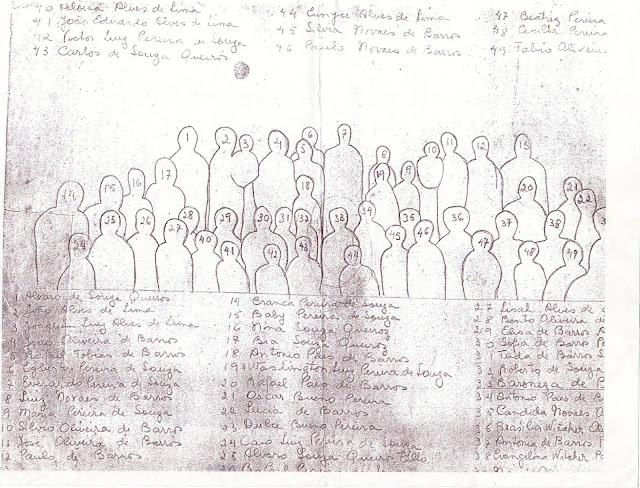 40 Heloisa Alves de Lima
41 João Eduardo Alves de Lima
42 Victor Luiz Pereira de Souza
43 Carlos de Souza Queiros
44 Alves de Lima
45 Silvia Novaes de Barros
46 Paulo Novaes de Barros
47 Beatriz Pereira
48 Cecilia Pereira
49 Fabio Oliveira
1 2 3 4 5 6 7 8 9 10 11 12 13
14 15 16 17 18 19 20 21 22
23 26 27 28 29 30 31 32 33 34 35 36 37 38
39 40 41 42 43 44 45 46 47 48 49
1 Alvaro de Souza Queiros
2 João Alves de Lima
3 Joaquim Luiz Alves de Lima
4 João Oliveira de Barros
5 Tobias de Barros
6 Pereira de Souza
7 Everardo Pereira de Souza
8 Luiz Novaes de Barros
9 Maria Pereira de Souza
10 Silvio Oliveira de Barros
11 José Oliveira de Barros
12 Paulo de Barros
14 Branca Pereira de Souza
15 Baby Pereira de Souza
16 Nina Souza Queiroz
17 Bia Souza Queiroz
18 Antonio Paes de Barros
19 Washington Luiz Pereira de Souza
20 Rafael Paes de Barros
21 Oscar Bueno Pereira
22 Lucia de Barros
23 Dulce Bueno Pereira
24 Caio Luiz Pereira de Souza
25 Alvaro Souza Queiroz Filho
27 Alves de
28 Bento Oliveira de
29 Elisa de Barros
30 Sofia de Barros
31 de Barros
32 Roberto de Souza
33 Baroneza de P
34 Antonio Paes de B
35 Candida Novaes
36 Brasilia Witaker
37 Antonia de Barros
38 Evangelina Witaker